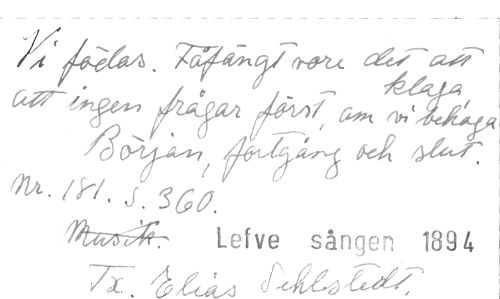 Vi födas. Fåfängt vore det att
klaga,
att ingen frågar först, om vi behaga
Början, fortgång och slut.
Nr. 181. s. 360.
Musik. Lefve sången 1894
Tx. Elias Sehlstedt.